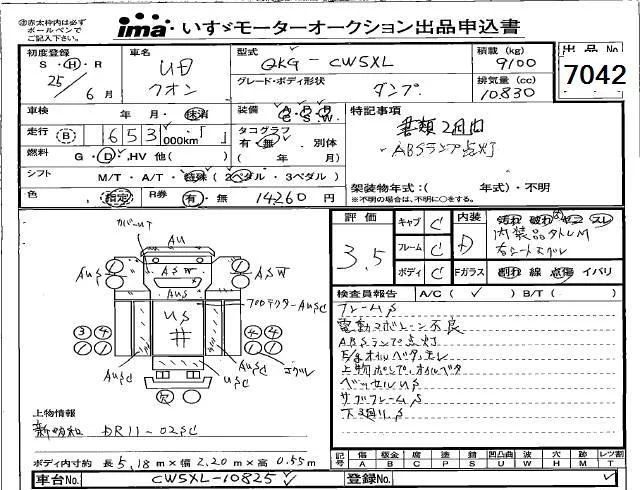 ※赤太枠内は必ず
ボールペンで
ご記入下さい。
ima いすゞモーターオークション出品申込書
初度登録 車名 型式 積載 (kg) 出品 No
S・H・R UD QKG-CW5XL 9100
25年 6月 クオン グレード・ボディ形状 排気量 (cc) 7042
ダンプ 10830
車検 年 月・抹消 装備 A・P・R C・S・W 特記事項
走行 B 653,000km・「 」 タコグラフ 有・無・別体 書類2週間
燃料 G・D・HV 他( ) ( 年 月) ABSランプ点灯
シフト M/T・A/T・特殊 (2ペダル・3ペダル) 架装物年式:( 年式)・不明
色 指定 R券 有・無 14260円 ※不明の場合は、不明に○をする。
評価 キャブ C 内装 汚れ 破れ ヤニ スレ
3.5 フレーム C D 内装品外しM
ボディ C Fガラス 割れ 線 点傷 イバリ
検査員報告 A/C(✓) B/T( )
フレームS
電動マボレーン不良
ABSランプ点灯
E/gオイルベタ、モレ
上物ポンプ、オイルベタ
ベッセルUS
サブフレームS
下廻りS
カバーUT
AU
AUS ASW ASW
AUS
プロテクターAUSC
US
#
③ ④ ④ ④
① ① ① ①
AUSC USC AUSC
欠
上物情報
新明和 DR11-02SC
ボディ内寸約 長 5.18m×幅 2.20m×高 0.55m
記号 傷 板金 腐 塗 錆 凹凸曲 波 穴 時み レツ割
A B C P S U W H M T
車台No. CW5XL-10825✓ 登録No. ✓